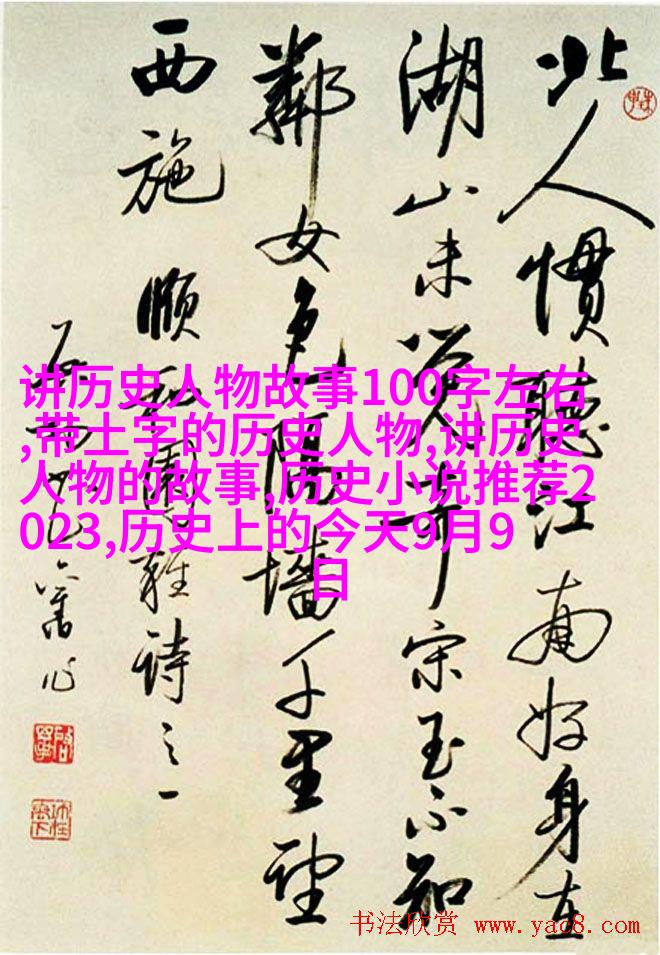 北人慣聽江南好身在
湖山未覺奇宋玉不知
鄰女色隔墻千里望
西施 頤和園雜詩之一
舊作
讲历史人物故事100字左右
,带土字的历史人物,讲历史
人物的故事,历史小说推荐2
023,历史上的今天9月9
日
书法欣赏 www.yac8.com